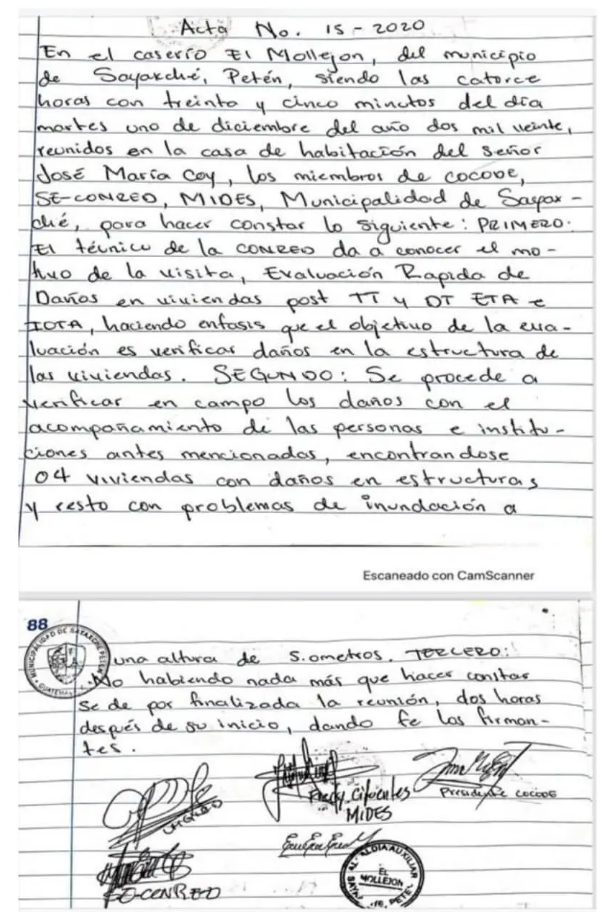 Acta No. 15-2020
En el caserío El Mollejon, del municipio
de Sayaxché, Petén, siendo las catorce
horas con treinta y cinco minutos del día
martes uno de diciembre del año dos mil veinte,
reunidos en la casa de habitación del señor
José María Coy, los miembros de cocode,
SE-CONRED, MIDES, Municipalidad de Sayax-
ché, para hacer constar lo siguiente: PRIMERO:
El técnico de la CONRED da a conocer el mo-
tivo de la visita, Evaluación Rapida de
Daños en viviendas post TT y DT ETA e
IOTA, haciendo enfasis que el objetivo de la eva-
luación es verificar daños en la estructura de
las viviendas. SEGUNDO: Se procede a
verificar en campo los daños con el
acompañamiento de las personas e institu-
ciones antes mencionadas, encontrandose
04 viviendas con daños en estructuras
y resto con problemas de inundación a
Escaneado con CamScanner
88
MUNICIPALIDAD DE SAYAXCHE PETEN
GUATEMALA
una altura de 5.0metros. TERCERO:
No habiendo nada más que hacer constar
se da por finalizada la reunión, dos horas
después de su inicio, dando fe los firman-
tes.
Fredy Cifuentes
MIDES
Presidente COCODE
SE-CONRED
ALCALDIA AUXILIAR
EL
MOLLEJON